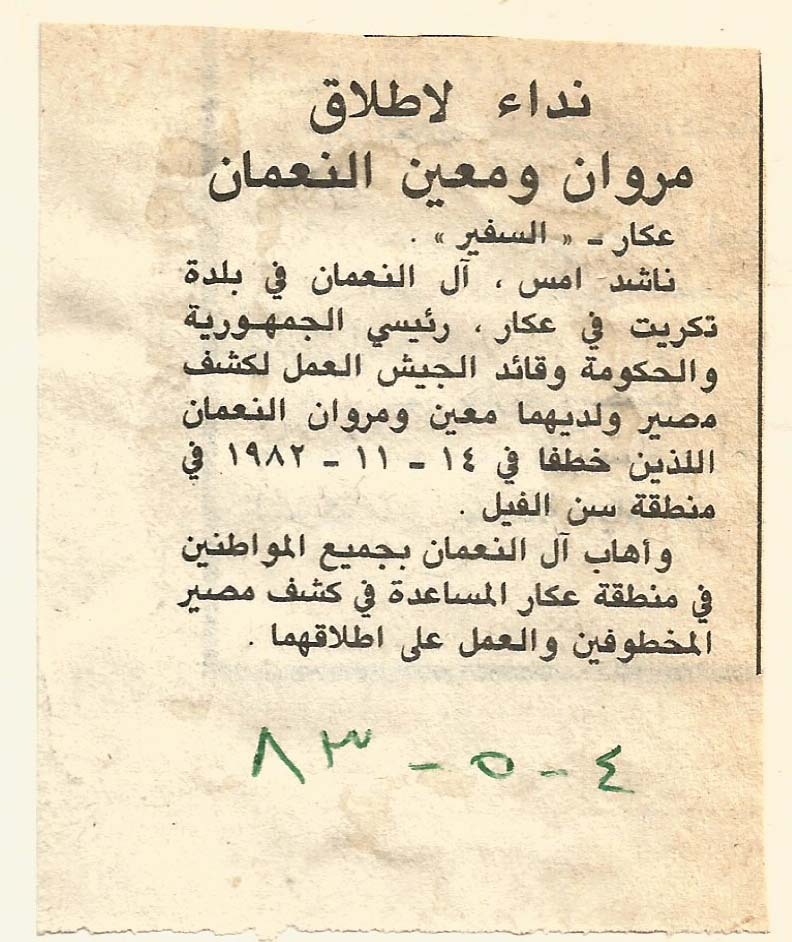 نداء لاطلاق
مروان ومعين النعمان
عكار ـ « السفير » .
ناشد امس ، آل النعمان في بلدة
تكريت في عكار ، رئيسي الجمهورية
والحكومة وقائد الجيش العمل لكشف
مصير ولديهما معين ومروان النعمان
اللذين خطفا في ١٤ ـ ١١ ـ ١٩٨٢ في
منطقة سن الفيل .
وأهاب آل النعمان بجميع المواطنين
في منطقة عكار المساعدة في كشف مصير
المخطوفين والعمل على اطلاقهما .
٤ - ٥ - ٨٣